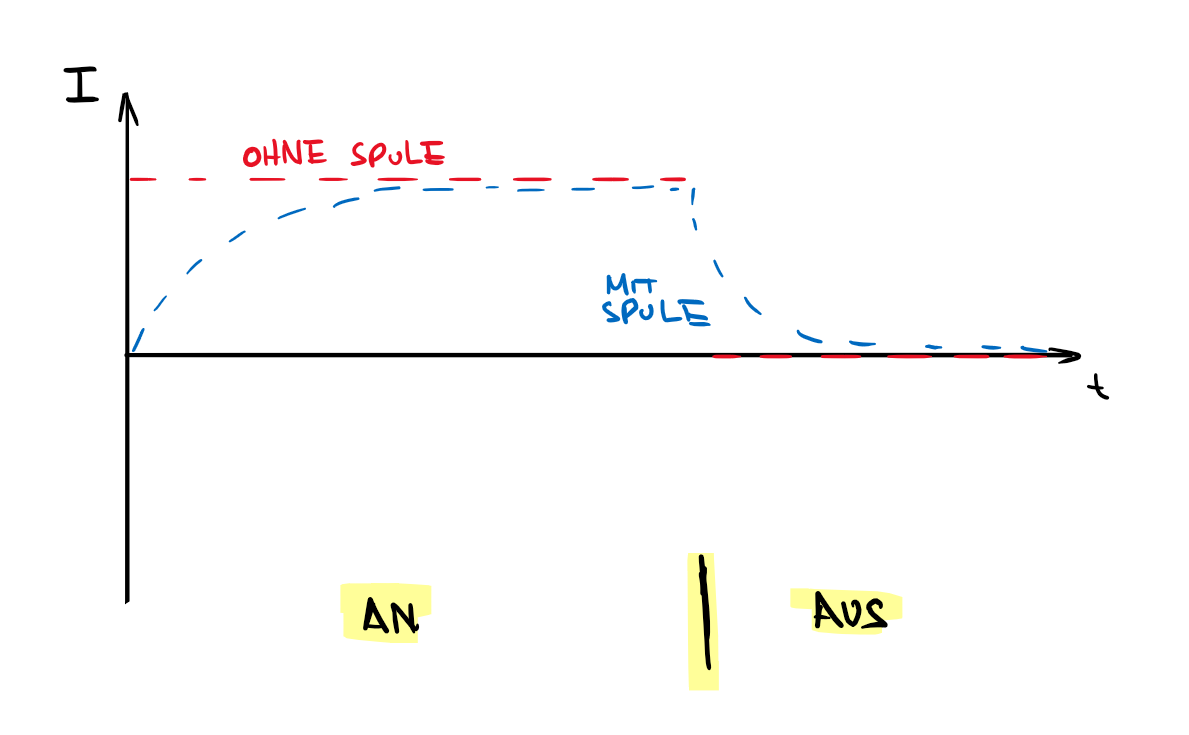 I
OHNE SPULE
MIT
SPULE
t
AN
AUS